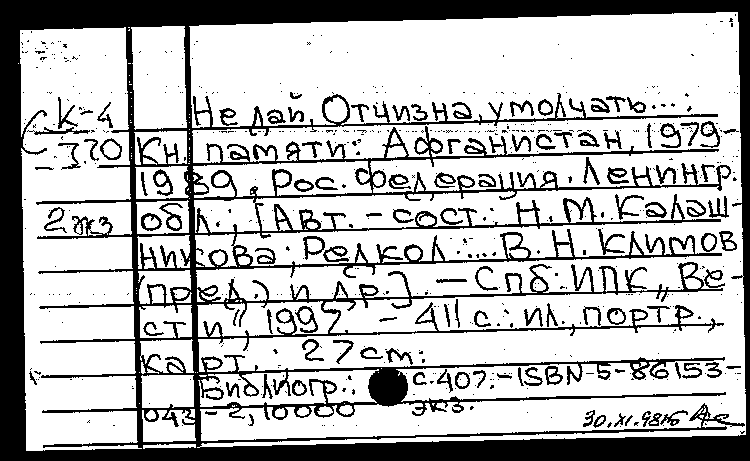 К-4 Не дай, Отчизна, умолчать...:
370 Кн. памяти: Афганистан, 1979-
1989. Рос. Федерация. Ленингр.
2 экз обл.; [Авт.-сост.: Н.М. Калаш-
никова; Редкол.:... В.Н. Климов
(пред.) и др.]. — Спб: ИПК „Ве-
сти", 1997. - 411 с.: ил., портр.,
карт.; 27 cm:
Библиогр.: с. 407. - ISBN-5-86153-
043-2, 10000 экз.
30.XI.98